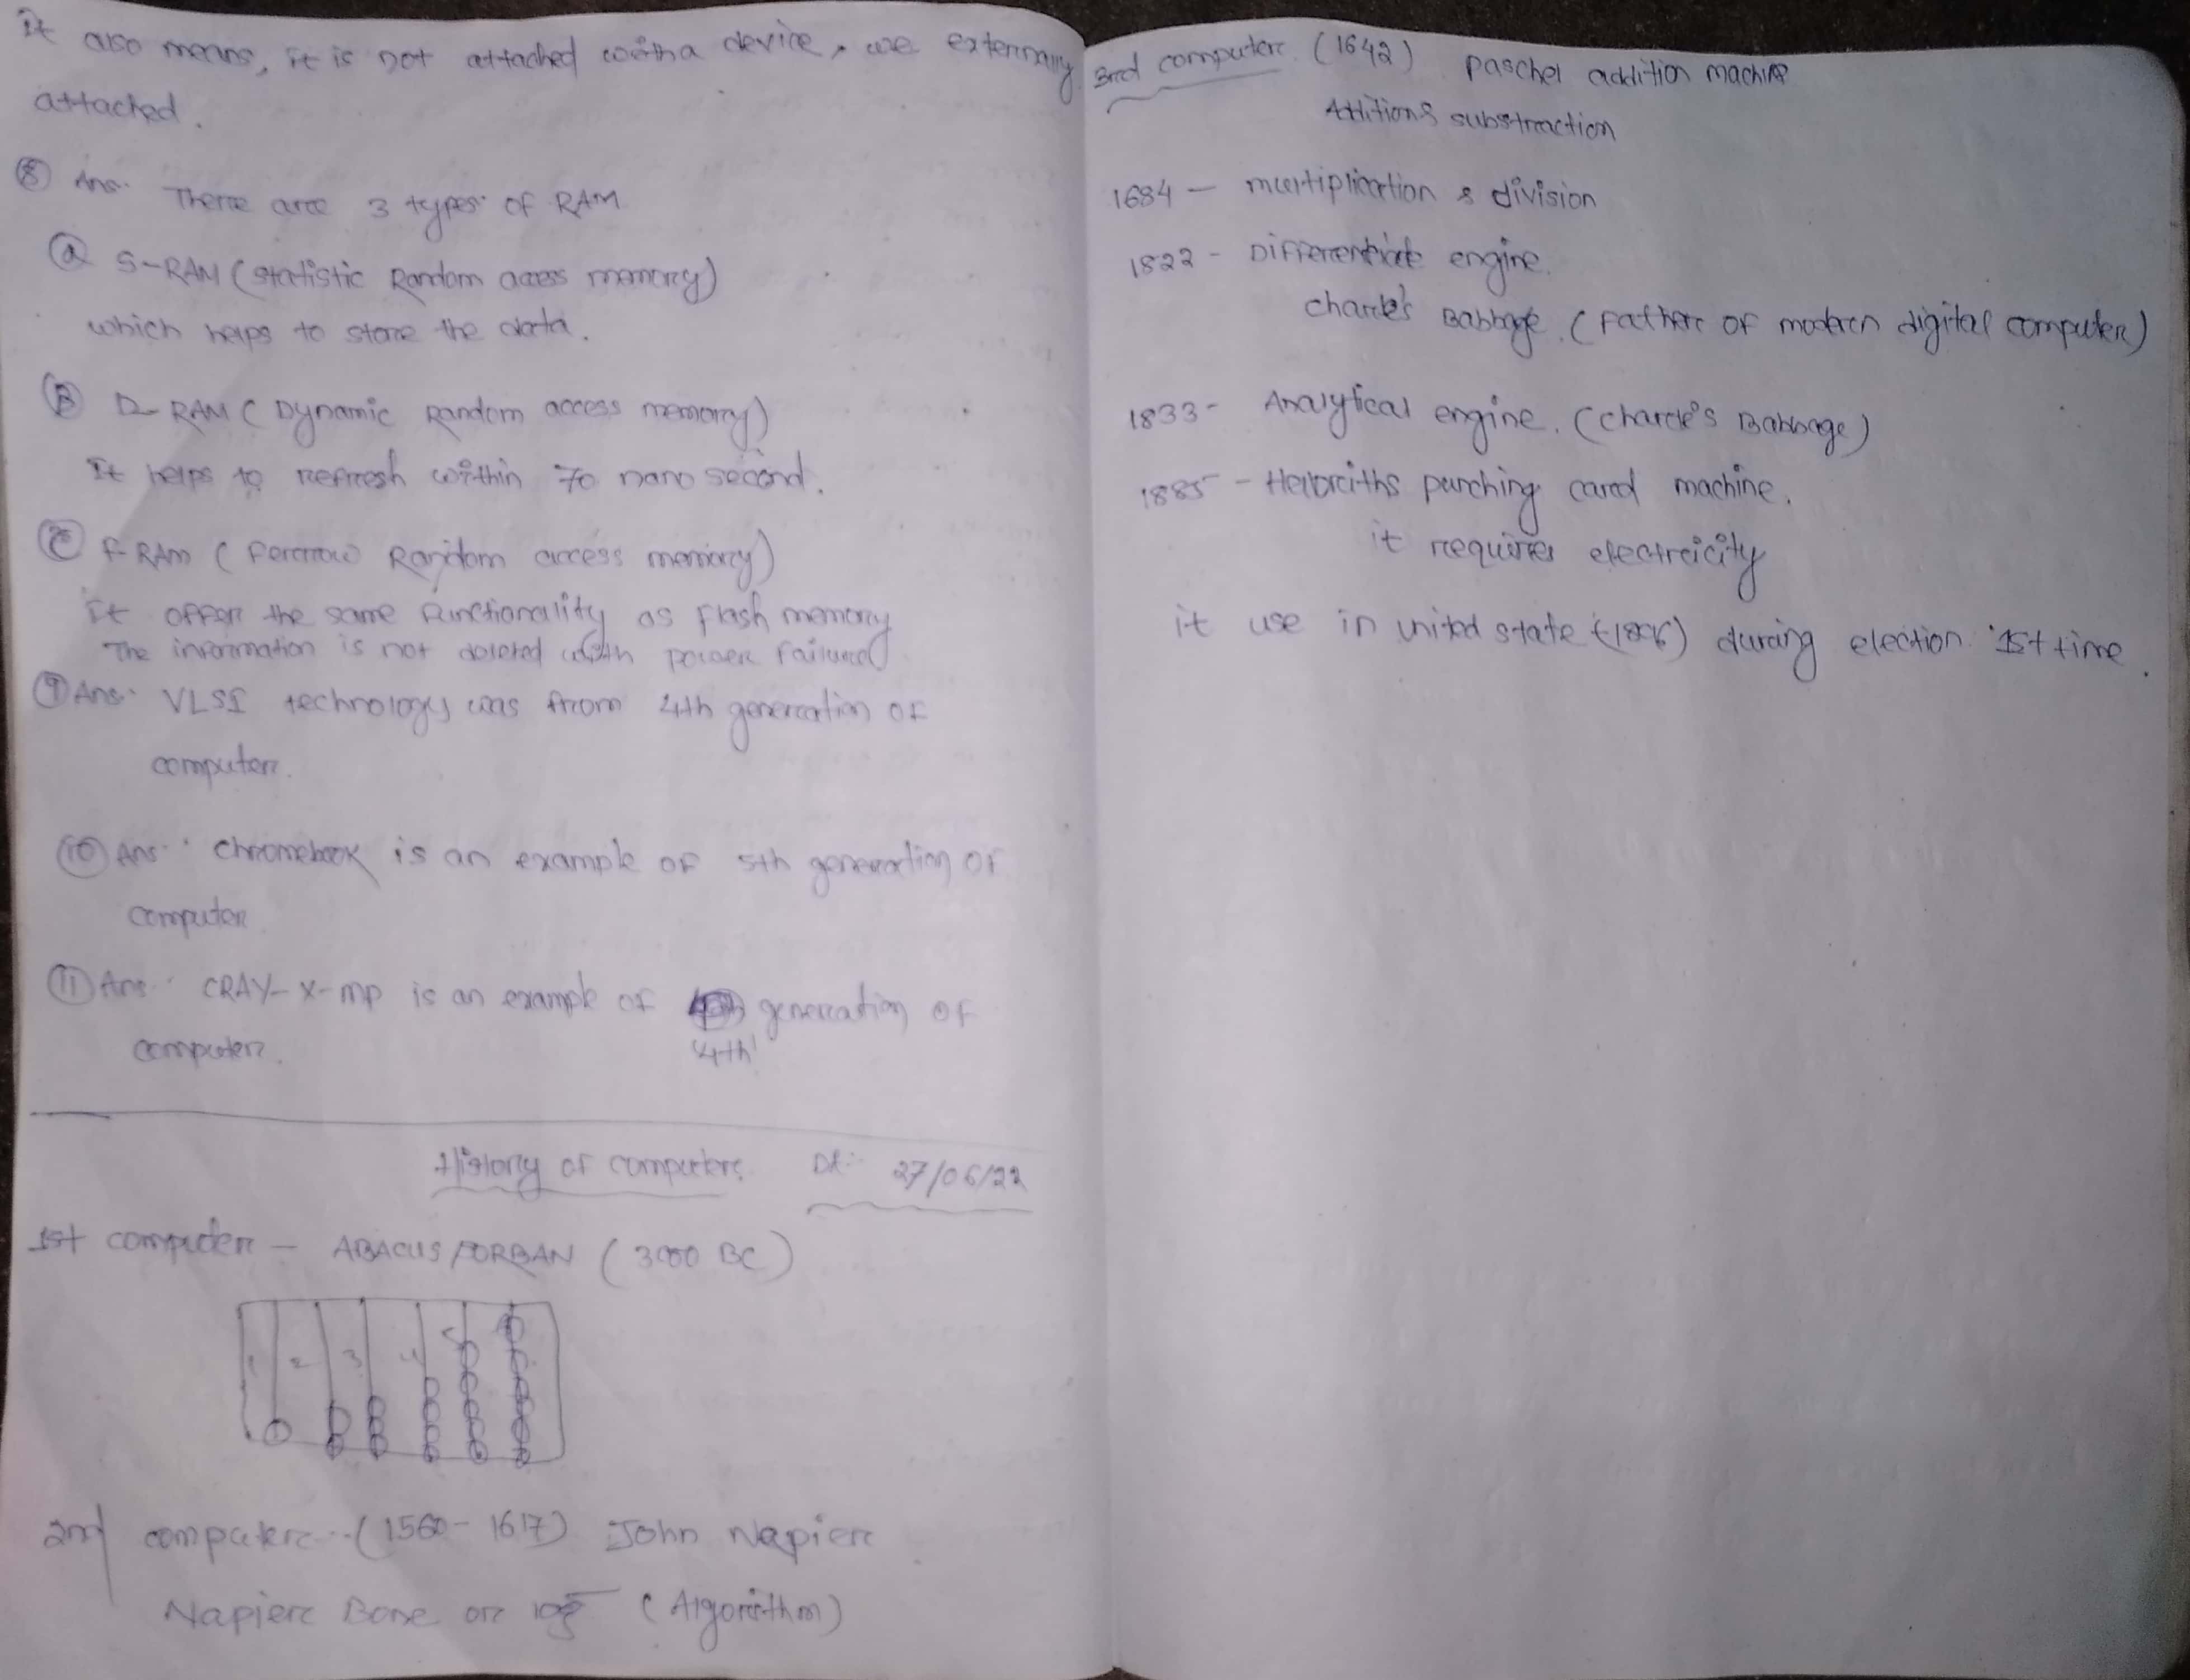 It also means, it is not attached with a device, we externaly
attached.
⑧ Ans. There are 3 types of RAM
ⓐ S-RAM (statistic Random access memory)
which helps to store the data.
Ⓑ D-RAM (Dynamic Random access memory)
It helps to refresh within 70 nano second.
Ⓒ F-RAM ( Random access memory)
It offer the same functionality as flash memory
The information is not deleted with power failured
⑨ Ans. VLSI technology was from 4th generation of
computer.
⑩ Ans. Chromebook is an example of 5th generation of
computer
⑪ Ans. CRAY-X-mp is an example of generation of
4th
computer.
History of computers. Dt: 27/06/22
1st computer - ABACUS / (3000 BC)
1 2 3 4 5
2nd computer (1560 - 1617) John Napier
Napier Bone or log (Algorithm)
3rd computer (1642) paschel addition machine
Additions substraction
1684 - multiplication & division
1822 - engine.
charle's Babbage. (Father of modern digital computer)
1833 - Analytical engine. (Charle's Babbage)
1885 - punching card machine.
it requires electricity
it use in united state during election 1st time.